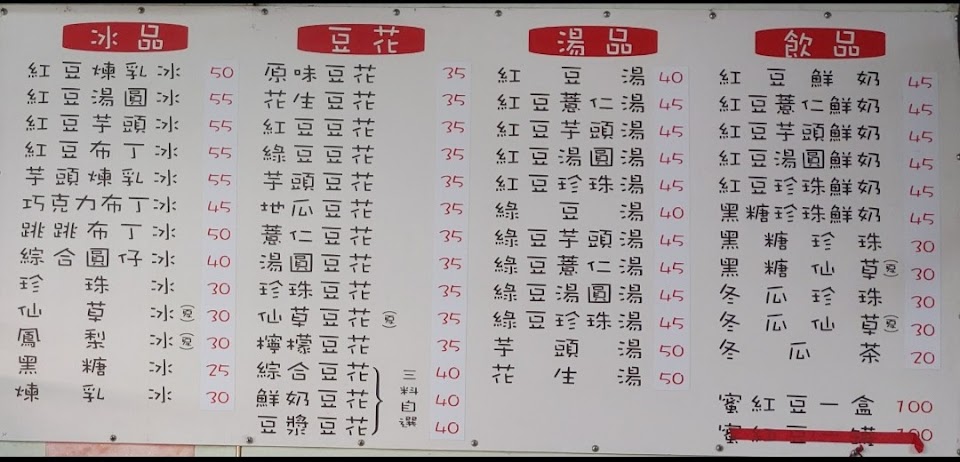 冰品
紅豆煉乳冰 50
紅豆湯圓冰 55
紅豆芋頭冰 55
紅豆布丁冰 55
芋頭煉乳冰 55
巧克力布丁冰 45
跳跳布丁冰 50
綜合圓仔冰 40
珍珠冰 30
仙草冰(夏) 30
鳳梨冰(夏) 30
黑糖冰 25
煉乳冰 30
豆花
原味豆花 35
花生豆花 35
紅豆豆花 35
綠豆豆花 35
芋頭豆花 35
地瓜豆花 35
薏仁豆花 35
湯圓豆花 35
珍珠豆花 35
仙草豆花(夏) 35
檸檬豆花 35
綜合豆花 40
鮮奶豆花 40
豆漿豆花 40
三料自選
湯品
紅豆湯 40
紅豆薏仁湯 45
紅豆芋頭湯 45
紅豆湯圓湯 45
紅豆珍珠湯 45
綠豆湯 40
綠豆芋頭湯 45
綠豆薏仁湯 45
綠豆湯圓湯 45
綠豆珍珠湯 45
芋頭湯 50
花生湯 50
飲品
紅豆鮮奶 45
紅豆薏仁鮮奶 45
紅豆芋頭鮮奶 45
紅豆湯圓鮮奶 45
紅豆珍珠鮮奶 45
黑糖珍珠鮮奶 45
黑糖珍珠 30
黑糖仙草(夏) 30
冬瓜珍珠 30
冬瓜仙草(夏) 30
冬瓜茶 20
蜜紅豆一盒 100
蜜紅豆一罐 100